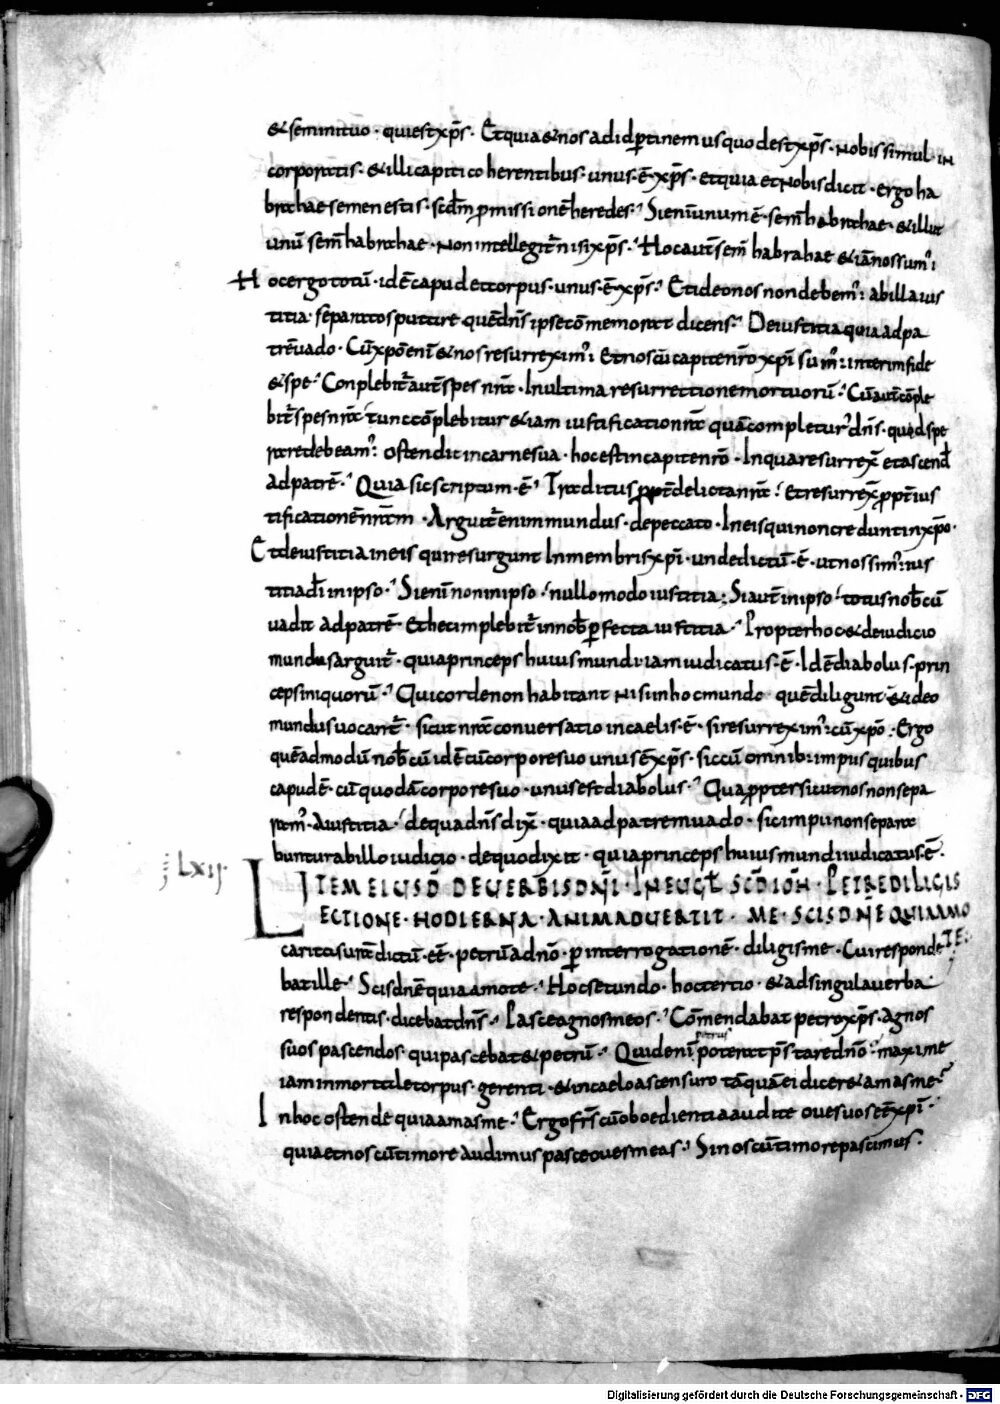 & semini tuo · qui est xp̄s · Et quia & nos ad id p̱tinemus quod est xp̄s · nobis simul in
corporatis · & illi capiti coherentibus · unus · ē · xp̄s · et quia et nobis dicit · ergo ha
brahae semen estis · scd̄m p̱missionē heredes · Si enī unum ē · sem̄ habrahae · & illut
unū sem̄ habrahae · non intellegit̄ nisi xp̄s · Hoc aut̄ sem̄ habrahae & iā nos sum' ;
Hoc ergo totū · id ē caput et corpus · unus · ē xp̄s · Et ideo nos non debem' : ab illa ius
titia · separatos putare quē dn̄s ipse cōmemorat dicens · De iustitia quia ad pa
trē vado · Cū xpo enī & nos resurreximꝰ ; Et nos cū capite nr̄o xpi sumꝰ : interim fide
& spe · Conplebit̄ aut̄ spes nr̄a · In ultima resurrectione mortuorū · Cū aut̄ cōple
bit̄ spes nr̄a tunc cōplebitur & iam iustificatio nr̄a quā completurꝰ dn̄s · quid spe
rare debeamꝰ : ostendit in carne sua · hoc est in capite nr̄o · In qua resurrex̄ et ascend̄
ad patrē · Quia sic scriptum · ē · Traditus propt̄ delicta nr̄a : Et resurrex̄ propt̄ ius
tificationē nr̄am · Arguit̄ enim mundus · de peccato · In eis qui non credunt in xpo ·
Et de iustitia in eis qui resurgunt In membris xpi · unde dictū · ē · ut nos simꝰ : ius
titia dī in ipso · Si enī non in ipso · nullo modo iustitia ; Si aut̄ in ipso · totus nob̄cū
vadit ad patrē · Et hec implebit̄ in nob̄ p̱fecta iustitia · Propter hoc & de iudicio
mundus arguit̄ · quia princeps huius mundi · iam iudicatus · ē · Id ē diabolus · prin
ceps iniquorū · Qui corde non habitant nisi in hoc mundo quē diligunt & ideo
mundus uocant̄ · sicut nr̄a conversatio in caelis · ē · si resurreximꝰ : cū xpo · Ergo
quēadmodū nob̄cū id ē cū corpore suo unus ē xp̄s · sic cū omnib; impus quibus
caput ē · cū quodā corpore suo · unus est diabolus · Qua ppter sicut nos non sepa
ramꝰ · A iustitia · de qua dn̄s dix̄ · quia ad patrem uado · sic impii non separa
buntur ab illo iudicio · de quo dixit · quia princeps huius mundi iudicatus · ē ·
; Lxii · ITEM EIUSD̄ DE VERBIS DN̄I · IN EUGL̄ SCD̄ IOH̄ · PETRE DILIGIS
LECTIONE · HODIERNA · ANIMADVERTIT · ME · SCIS DN̄E QUIA AMO
caritas ura dictū · eē · petrū a dn̄o · p̱ interrogationē · diligis me · Cui responde TE ·
bat ille · Scis dn̄e quia amo te · Hoc secundo · hoc tertio · & ad singula verba
respondentis · dicebat dn̄s · Pasce agnos meos · Cōmendabat petro xp̄s · agnos
suos pascendos · qui pascebat & petrū · Quid enī petrus poterat p̄stare dn̄o · maxime
iam inmortale corpus · gerenti · & in caelo ascensuro tāquā ei diceret amas me
In hoc ostende quia amas me · Ergo fr̄s cū oboedientia audite oues uos eē xpi ·
quia et nos cū timore audimus pasce oues meas · Si nos cū timore pascimus ·
Digitalisierung gefördert durch die Deutsche Forschungsgemeinschaft · DFG